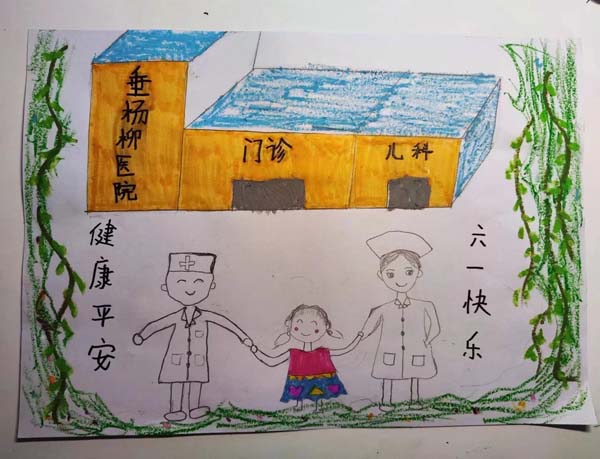 垂杨柳医院
门诊
儿科
健康平安
六一快乐